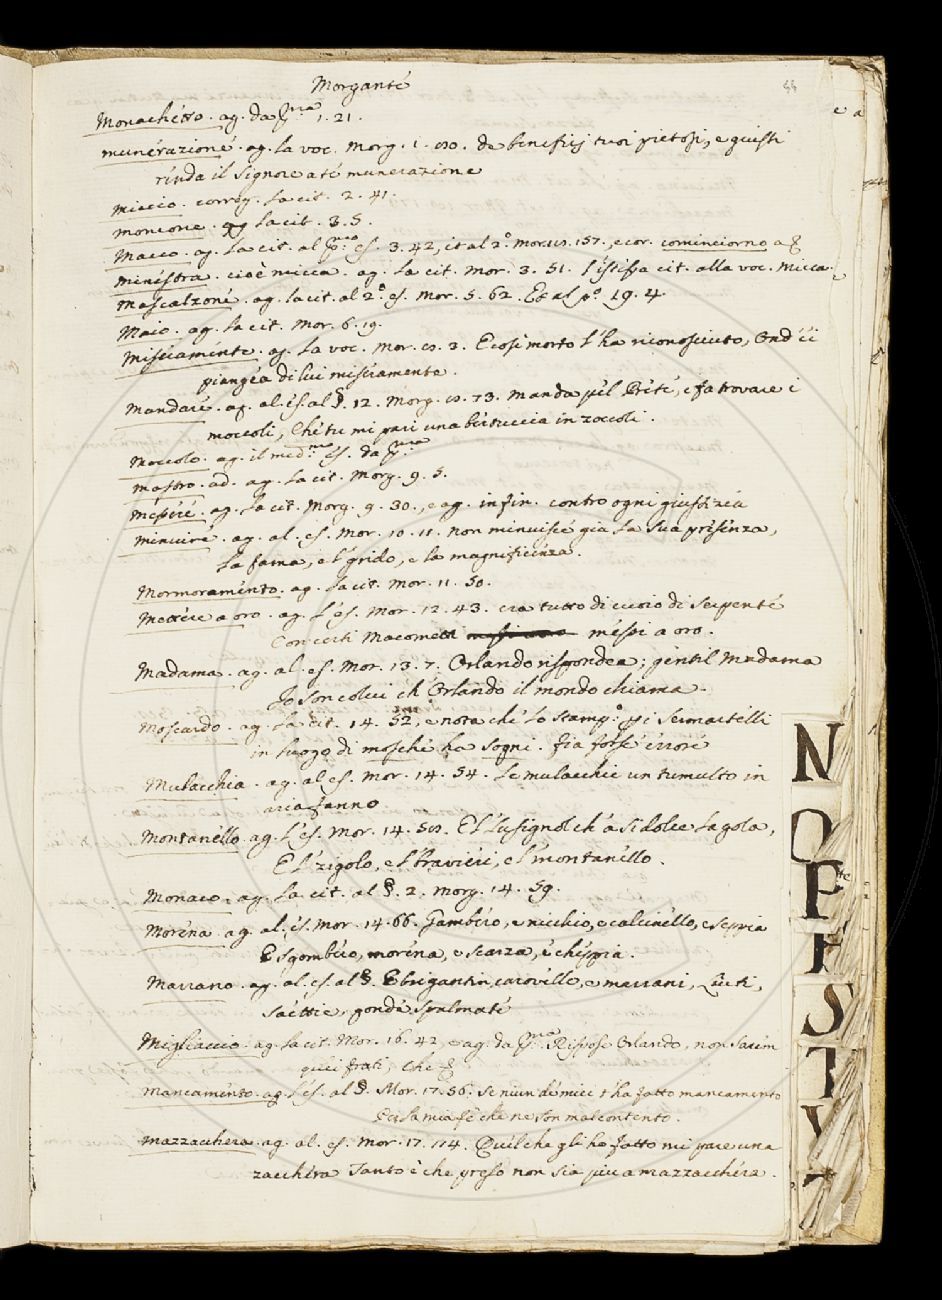 Morgante
58
Monachetto. ag. da p.ma 1. 21.
munerazione. ag. la voc. Morg. 1. de benefizij tuoi pietosi, e giusti
renda il Signore a te munerazione
Miccio. correg. la cit. 2. 41.
moncone. ag la cit. 3. 5.
Macco. ag. la cit. al es. 3. 42, it al 2.° mor. 157. e cor. cominciorno a
minestra. cioè micca. ag. la cit. Mor. 3. 51. l'istessa cit. alla voc. Micca.
Mascalzone. ag. la cit. al 2.° es. Mor. 5. 62. Et al p.° 19. 4
Maio. ag. la cit. Mor. 6. 19.
Miseramente. ag. la voc. Mor. 3. E così morto l'ha riconosciuto, Ond' ei
piangea di lui miseramente.
Mandare. ag. al. es. al §. 12. Morg. 73. Manda pel Prete, e fa trovare i
moccoli, Che tu mi pari una bertuccia in zoccoli.
Moccolo. ag. il med.mo es. da p.ma
mastro. ad. ag. la cit. Morg. 9. 5.
mesere. ag. la cit. Morg. 9. 30., e ag. in fin. contro ogni giustizia
minuire. ag. al. es. Mor. 10. 11. non minuisce già la sua presenza,
La fama, e 'l grido, e la magnificenza.
Mormoramento. ag. la cit. Mor. 11. 50.
Mettere a oro. ag. l'es. Mor. 12. 43. era tutto di cuoio di serpente
Con certi Macometti messi a oro.
Madama. ag. al. es. Mor. 13. 7. Orlando rispondea; gentil Madama
Io son colui ch' Orlando il mondo chiama.
Moscardo. ag. la cit. 14. 52, e nota che lo stamp.° Sermartelli
in luogo di mosche ha sogni. fia forse errore
Mulacchia. ag. al es. Mor. 14. 54. Le mulacchie un tumulto in
aria fanno
Montanello ag. l'es. Mor. 14. E 'l lusignol ch' à sì dolce la gola,
E 'l zigolo, e 'l bravieri, e 'l montanello.
Monaco. ag. la cit. al §. 2. Morg. 14. 59.
Morena. ag. al. es. Mor. 14. 66. Gambero, e nicchio, e calcinello, e seppia
E sgombero, morena, e scarza, e cheppia.
Marrano. ag. al. es. al §. E brigantin, caroville, e marrani, Liuti,
Saettie, gonde spalmate
Migliaccio. ag. la cit. Mor. 16. 42, e ag. da p.ma Rispose Orlando, non saren
quei frati, Che
mancamento. ag. l'es. al §. Mor. 17. 56. Se niun de miei t'ha fatto mancamento
Per la mia fè che ne son malcontento.
Mazzacchera. ag. al. es. Mor. 17. 114. Quel che gli ho fatto mi pare una
zacchera Tanto è che preso non sia più a mazzacchera.
N
O
P
S
T
V